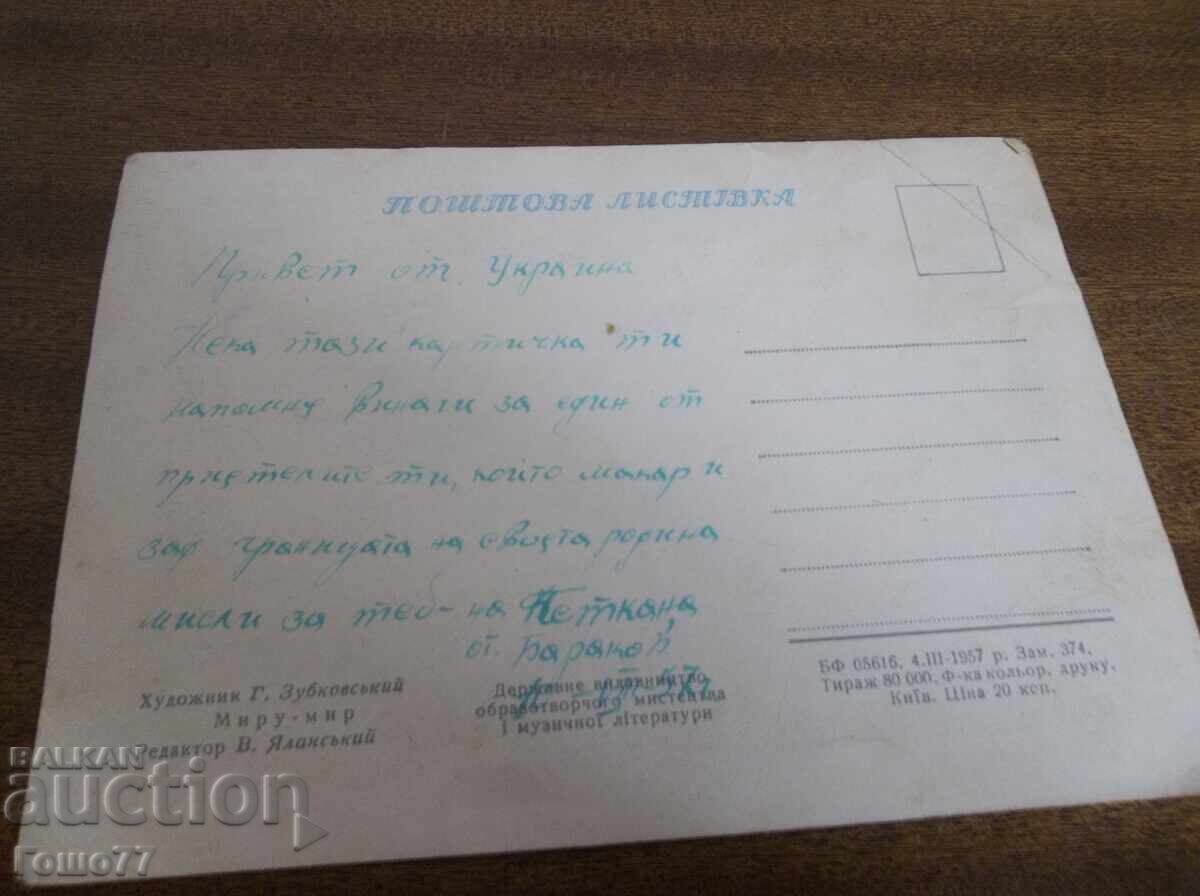 ПОШТОВА ЛИСТІВКА
Привет от Украина
Нека тази картичка ти
напомня винаги за един от
приятелите ти, който макар и
зад границата на своята родина
мисли за теб - на Петкана,
от Бараков
Художник Г. Зубковський
Миру - мир
Редактор В. Яланський
Державне видавництво
образотворчого мистецтва
і музичної літератури
БФ 05616. 4.III-1957 р. Зам. 374.
Тираж 80 000. Ф-ка кольор. друку,
Київ. Ціна 20 коп.
BALKAN
auction
Гошо77